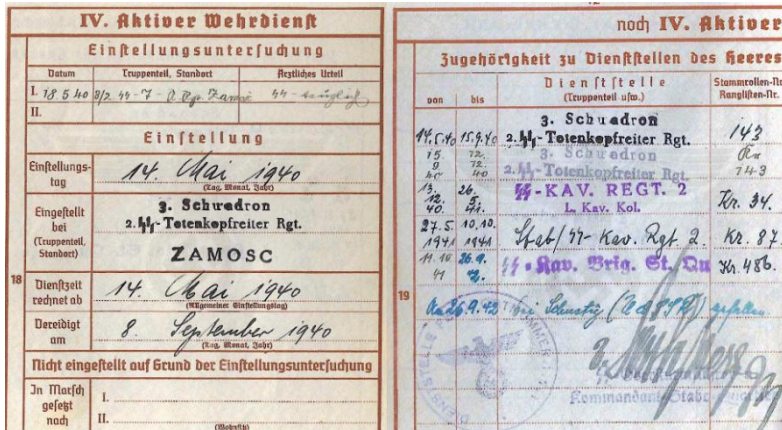 IV. Aktiver Wehrdienst
Einstellungsuntersuchung
Datum Truppenteil, Standort Ärztliches Urteil
I. 18 5 40 3/2 ᛋᛋ-T- ᛋᛋ-tauglich
II.
Einstellung
Einstellungs-
tag
14. Mai 1940
(Tag, Monat, Jahr)
Eingestellt
bei
(Truppenteil,
Standort)
3. Schwadron
2. ᛋᛋ-Totenkopfreiter Rgt.
ZAMOSC
18
Dienstzeit
rechnet ab
14. Mai 1940
(Allgemeiner Einstellungstag)
Vereidigt
am
8. September 1940
(Tag, Monat, Jahr)
Nicht eingestellt auf Grund der Einstellungsuntersuchung
In Marsch
gesetzt
nach
I.
II.
(Wohnsitz)
noch IV. Aktiver
Zugehörigkeit zu Dienststellen des Heeres
von bis Dienststelle
(Truppenteil usw.)
Stammrollen-Nr.
Ranglisten-Nr.
14.5.40 15.9.40 3. Schwadron
2. ᛋᛋ-Totenkopfreiter Rgt. 143
15. 9. 40 12. 12. 40 3. Schwadron
2. ᛋᛋ-Totenkopfreiter Rgt. 143
13. 12. 40. 26. 5. 41. ᛋᛋ-KAV. REGT. 2
L. Kav. Kol. Kr. 34.
27.5. 1941 10.10. 1941 Stab/ᛋᛋ-Kav. Rgt. 2. Kr. 87
11.10. 41 26.9. 42. ᛋᛋ-Kav. Brig. St. Qu Kr. 486.
19
Am 26.9.42 bei (UdSSR) gefallen.
DIENSTSTELLE
Kommandant Stabs